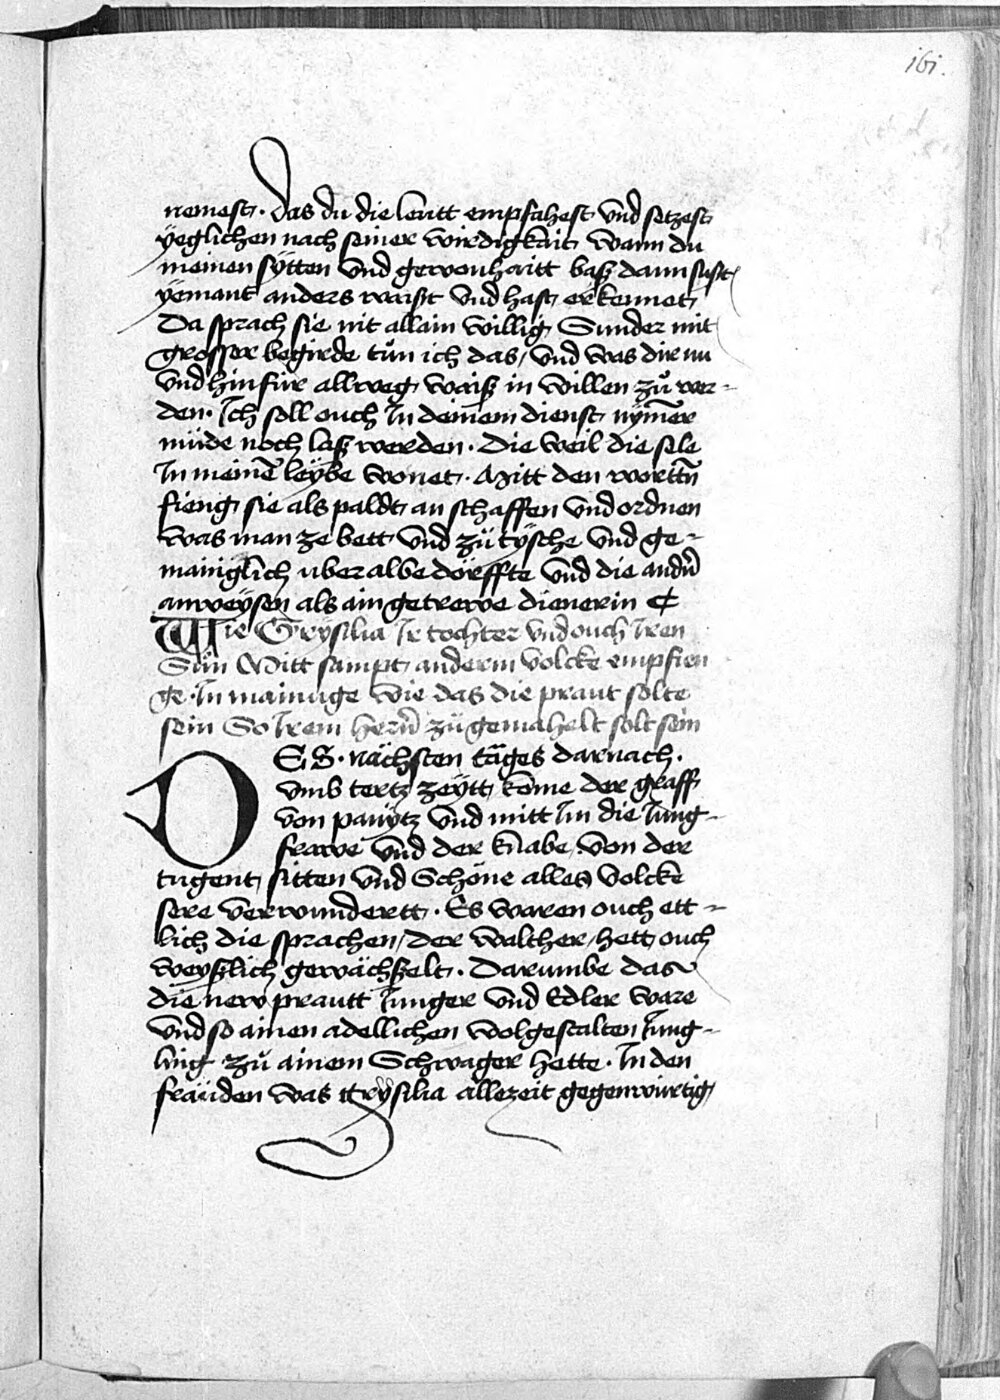 161.
nemest. das du die leutt empfahest und setzest
yeglichen nach seiner wirdigkait wann du
meinen sÿtten und gewonhaitt baß dann sust
yemant anders waist und hast erkennet
Da sprach sie nit allain willig Sunder mit
grosser begirde tůn ich das, und was dir nu
und hinfür allweg waiß in willen zů wer-
den. Ich soll ouch In deinem dienst nÿmer
müde noch laß werden. Die weil die sele
In meinē leybe wonet. Mitt den wortñ
fieng sie als paldt an schaffen und ordnen
was man ze bett und zů tÿsche und ge-
mainglich uberal bedörffte und die andn̄
anweÿsen als ain getrewe dienerin ¶
Wie Grÿsilia Ir tochter und ouch Iren
Sůn Mitt sampt anderm volcke empfien
ge. In mainūge wie das die praut solte
sein So Irem hern̄ zů gemahelt solt sein
DES. nächsten tages darnach.
umb tertz zeÿtt kome der graff
von panÿtz und mitt Im die Jung-
frawe und der knabe. von der
tugent sitten und Schöne alles volcke
sere verwundertt. Es waren ouch ett-
lich die sprachen, der walther, hett ouch
weyßlich gewächßelt. Darumbe das
die new prautt Junger und Edler ware
und so ainen adellichen wolgestalten Jung-
ling zů ainem Schwager hette. In den
fräuden was Grÿsilia allezeit gegenwürtig